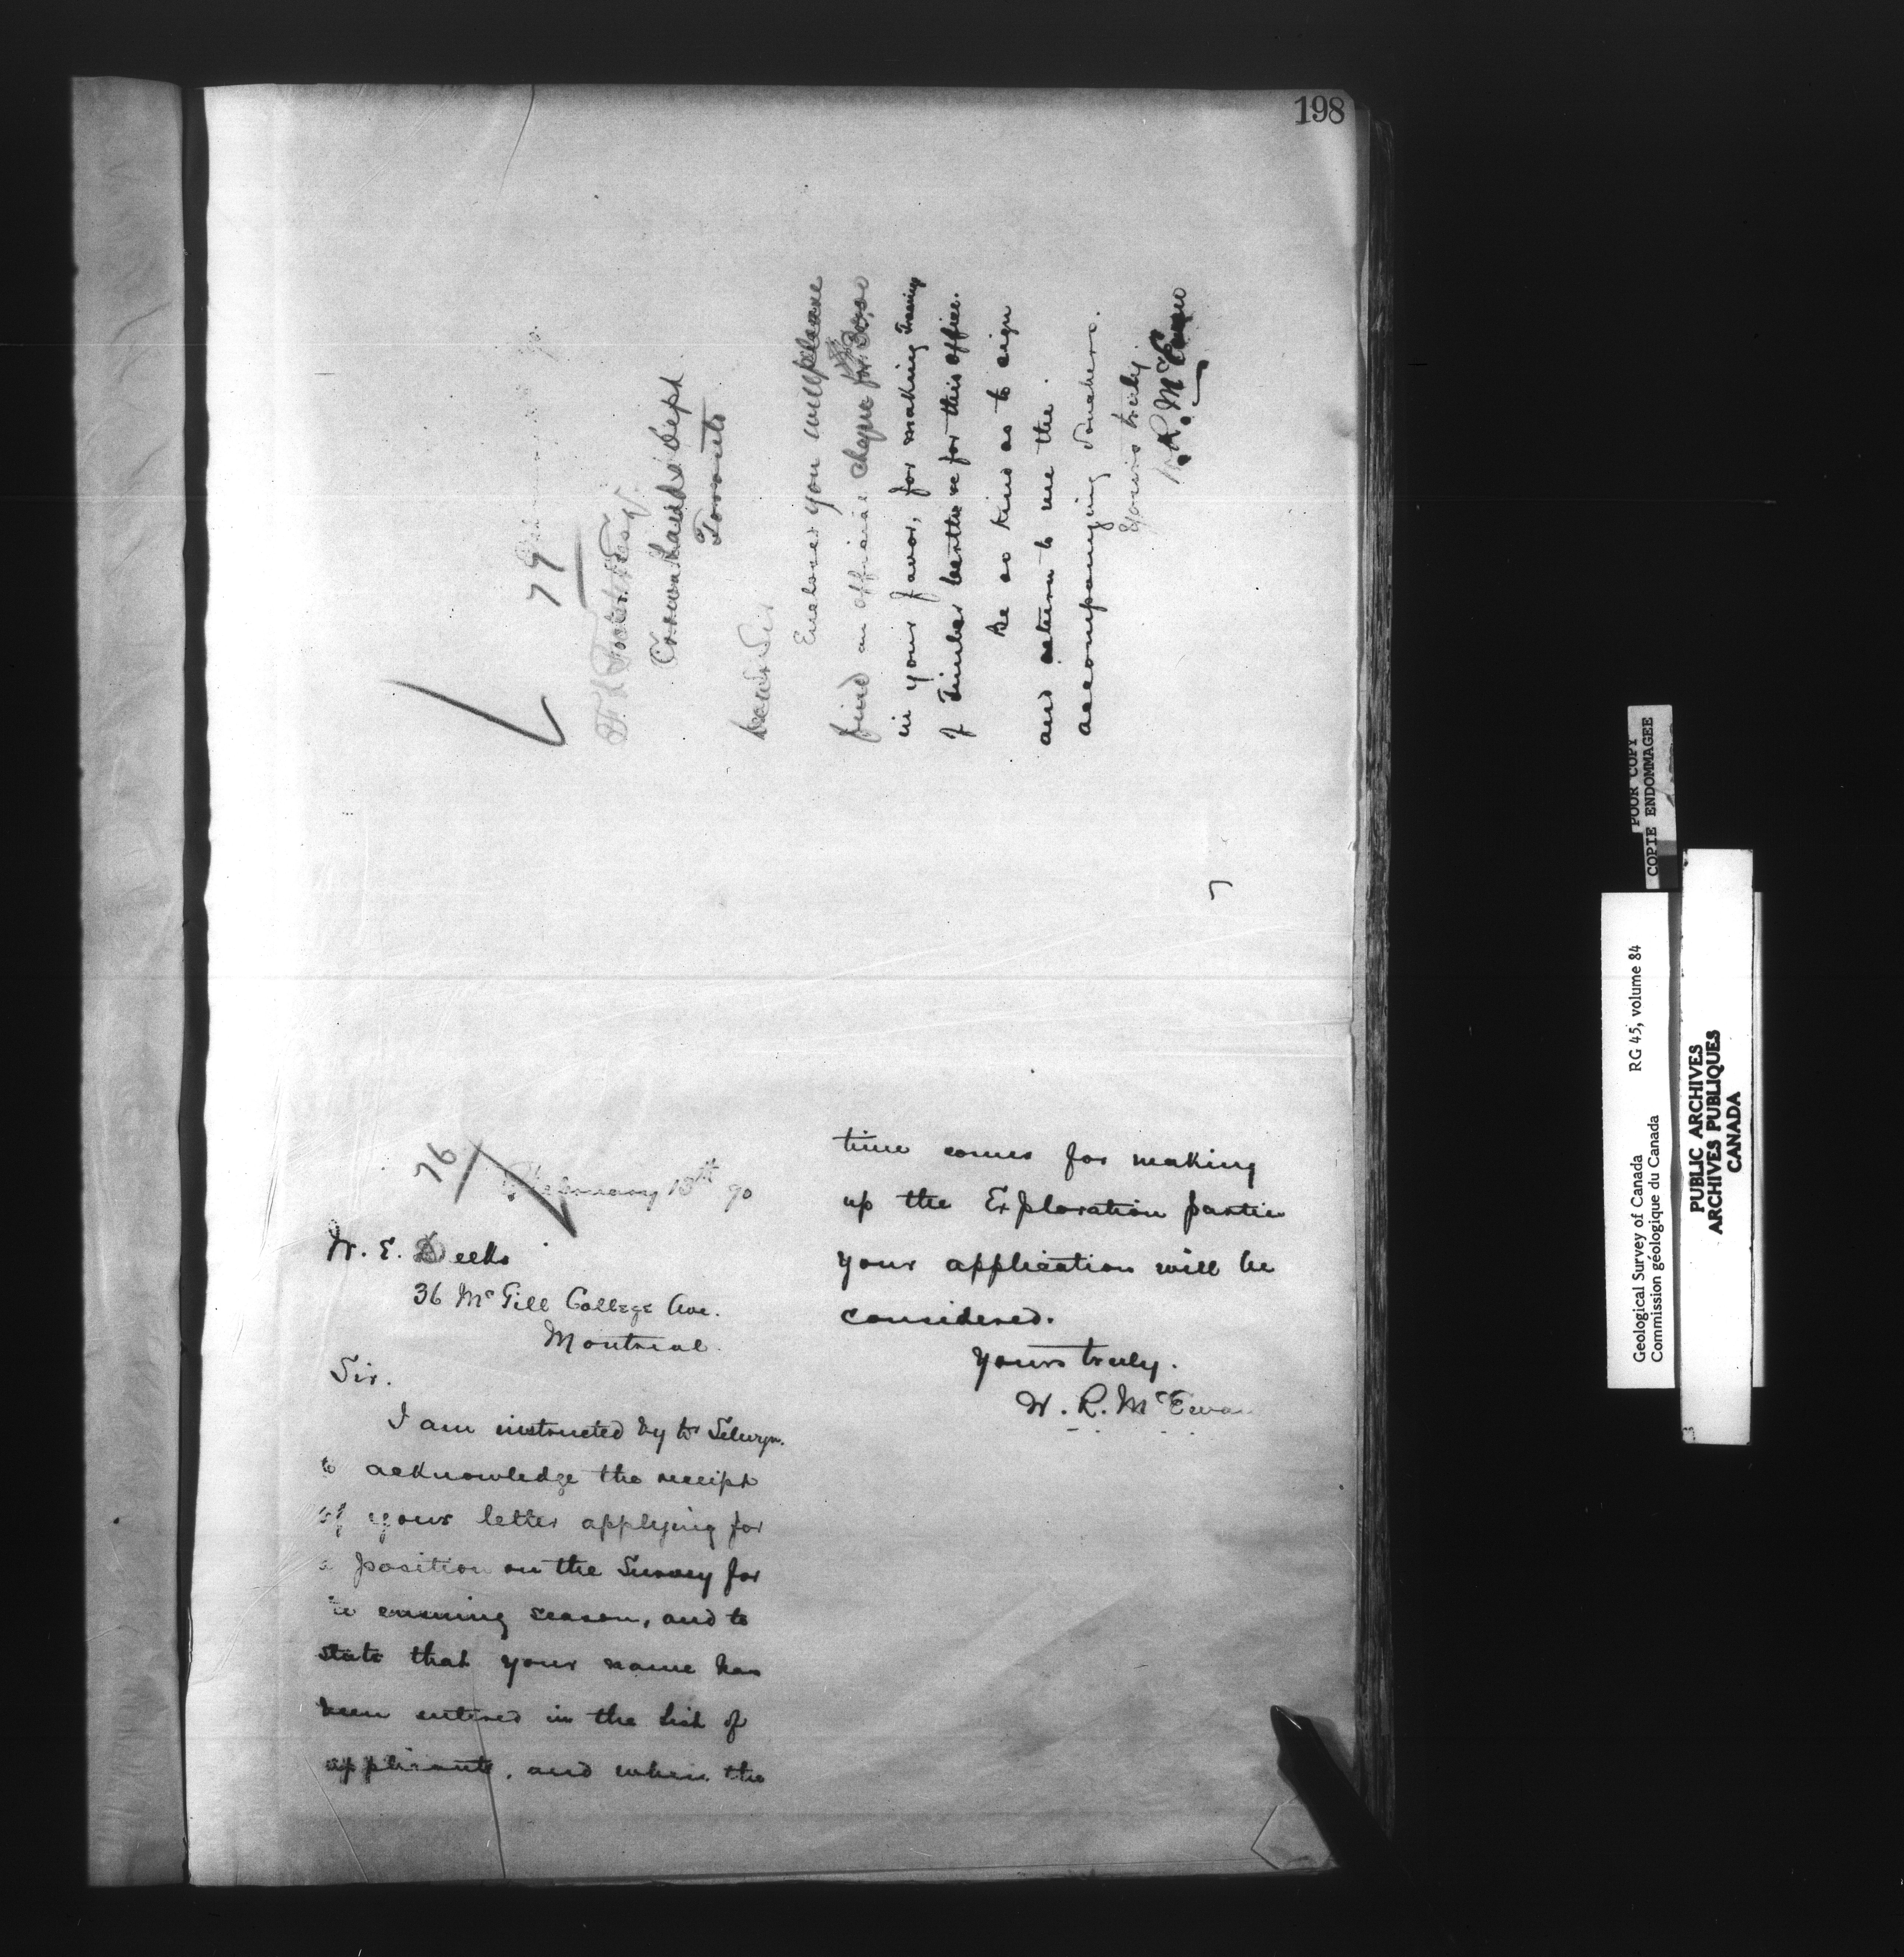 198
79
Crown Lands Dept
Toronto
Dear Sir
Enclosed you will please
find an official cheque for
in your favor, for making Tracing
of Timber berths &c for this office.
Be so kind as to sign
and return to me the
accompanying vouchers.
Yours truly
W. R. McEwan
76
February 13th 90
W. E. Deeks
36 McGill College Ave.
Montreal.
Sir.
I am instructed by Dr Selwyn.
to acknowledge the receipt
of your letter applying for
a position on the Survey for
the ensuing season, and to
state that your name has
been entered in the list of
applicants, and when the
time comes for making
up the Exploration parties
your application will be
considered.
Yours truly.
W. R. McEwan
POOR COPY
COPIE ENDOMMAGEE
Geological Survey of Canada
Commission géologique du Canada
RG 45, volume 84
PUBLIC ARCHIVES
ARCHIVES PUBLIQUES
CANADA